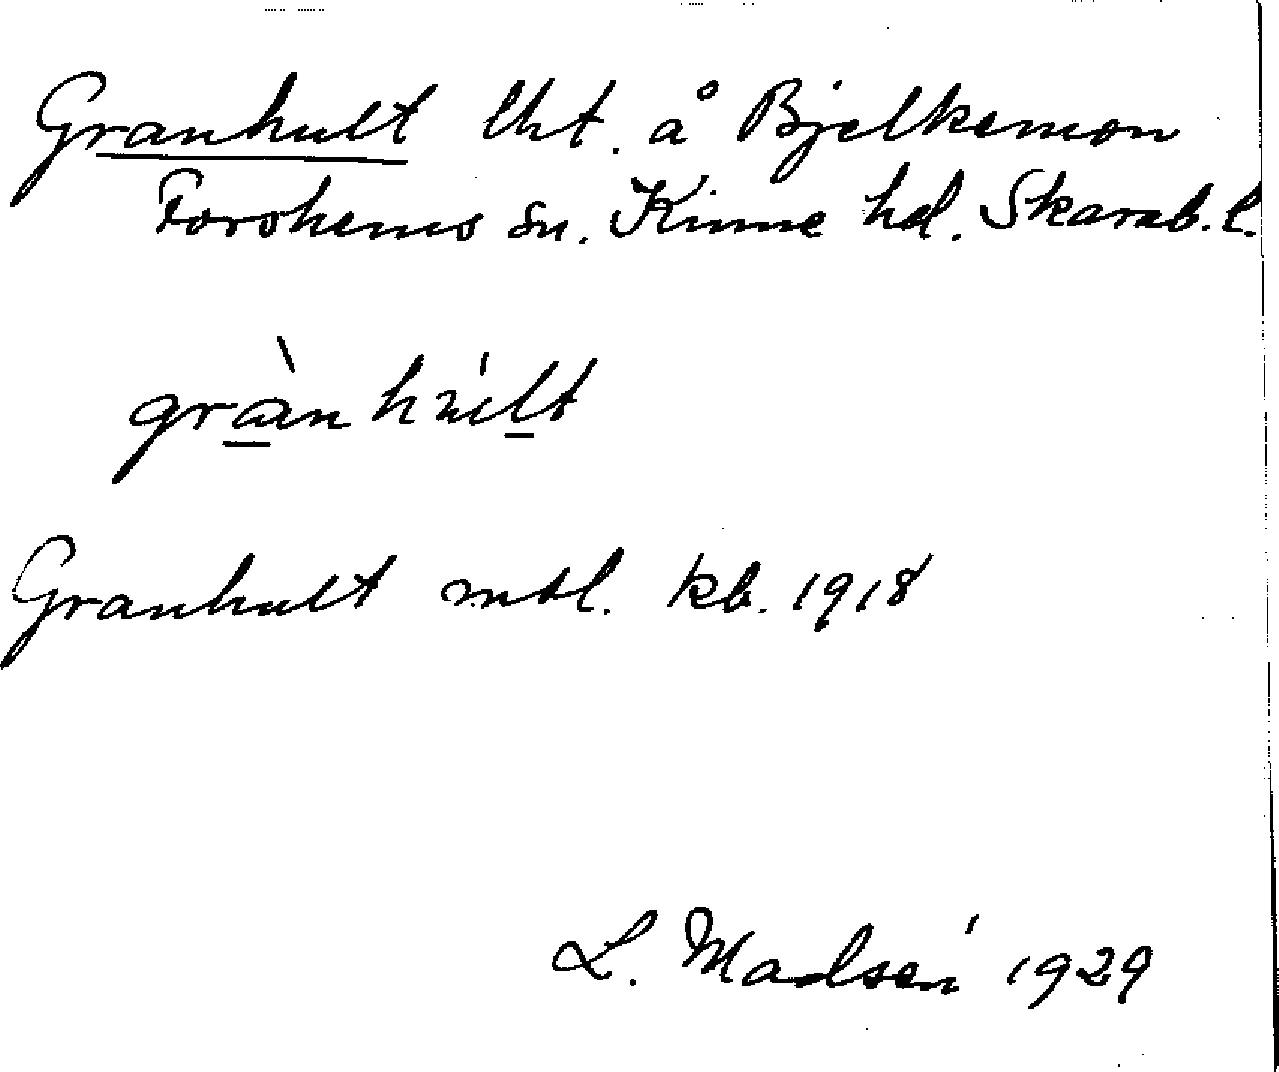 Granhult lht. å Bjelkemon
Forshems sn. Kinne hd. Skarab. l.
grànhúlt
Granhult mtl. kb. 1918
L. Madsén 1929